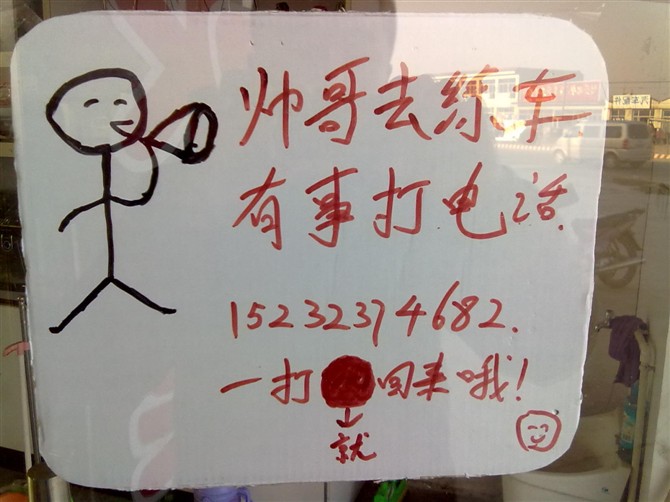 帅哥去练车
有事打电话.
15232374682.
一打回来哦!
就
汽车配件